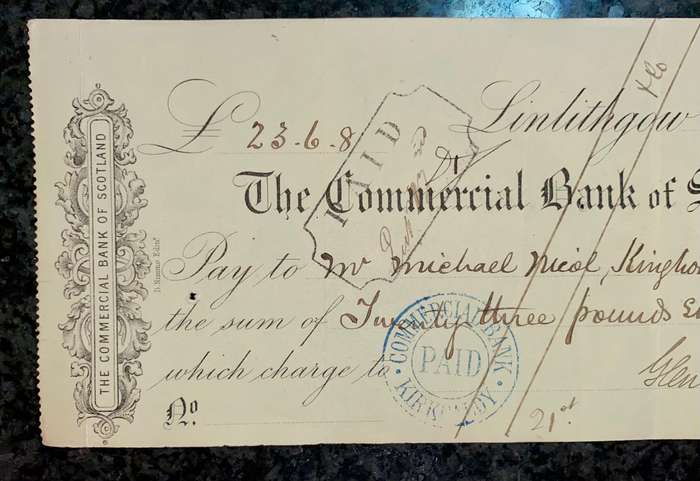 THE COMMERCIAL BANK OF SCOTLAND
£ 23-6-8 Linlithgow
PAID
The Commercial Bank of S
Pay to Mr Michael Nicol, Kingho
the sum of Twenty three pounds
COMMERCIAL BANK
PAID
KIRKCALDY
which charge to Glen
No.
21st